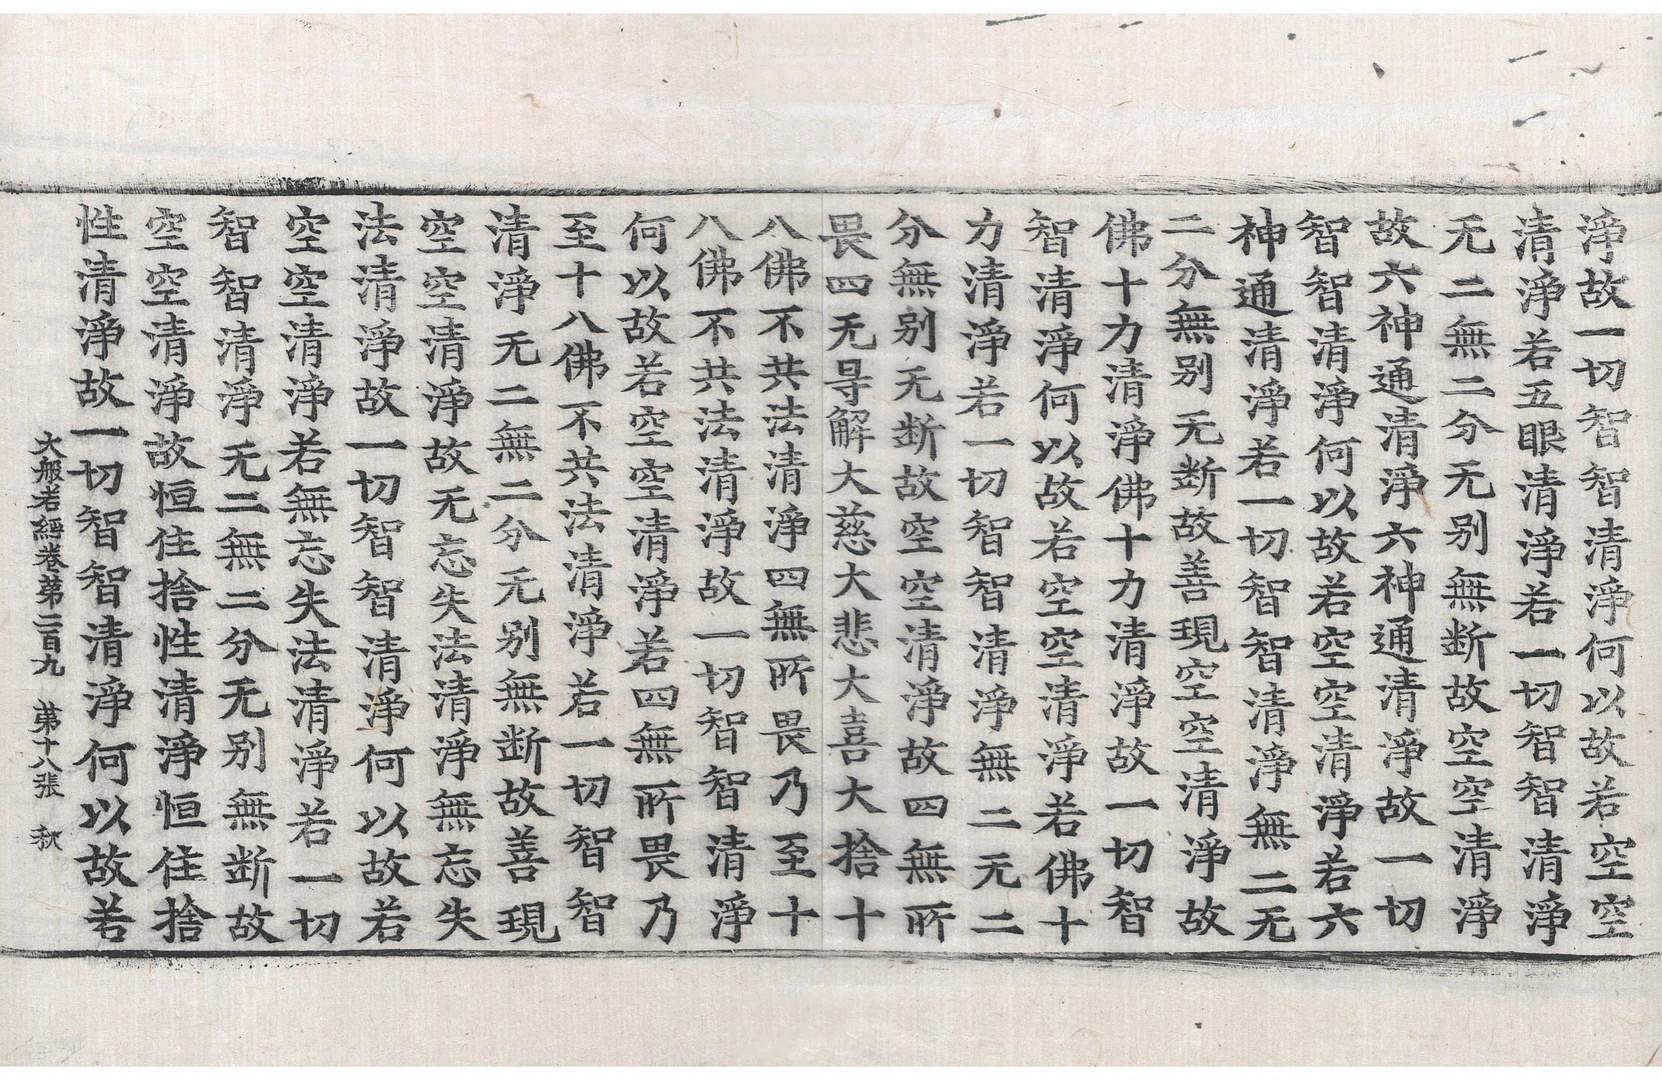 淨故一切智智清淨何以故若空空
清淨若五眼清淨若一切智智清淨
无二無二分无别無断故空空清淨
故六神通清淨六神通清淨故一切
智智清淨何以故若空空清淨若六
神通清淨若一切智智清淨無二无
二分無别无断故善現空空清淨故
佛十力清淨佛十力清淨故一切智
智清淨何以故若空空清淨若佛十
力清淨若一切智智清淨無二无二
分無别无断故空空清淨故四無所
畏四无㝵解大慈大悲大喜大捨十
八佛不共法清淨四無所畏乃至十
八佛不共法清淨故一切智智清淨
何以故若空空清淨若四無所畏乃
至十八佛不共法清淨若一切智智
清淨无二無二分无别無断故善現
空空清淨故无忘失法清淨無忘失
法清淨故一切智智清淨何以故若
空空清淨若無忘失法清淨若一切
智智清淨无二無二分无别無断故
空空清淨故恒住捨性清淨恒住捨
性清淨故一切智智清淨何以故若
大般若經卷苐二百九 苐十八張 秋